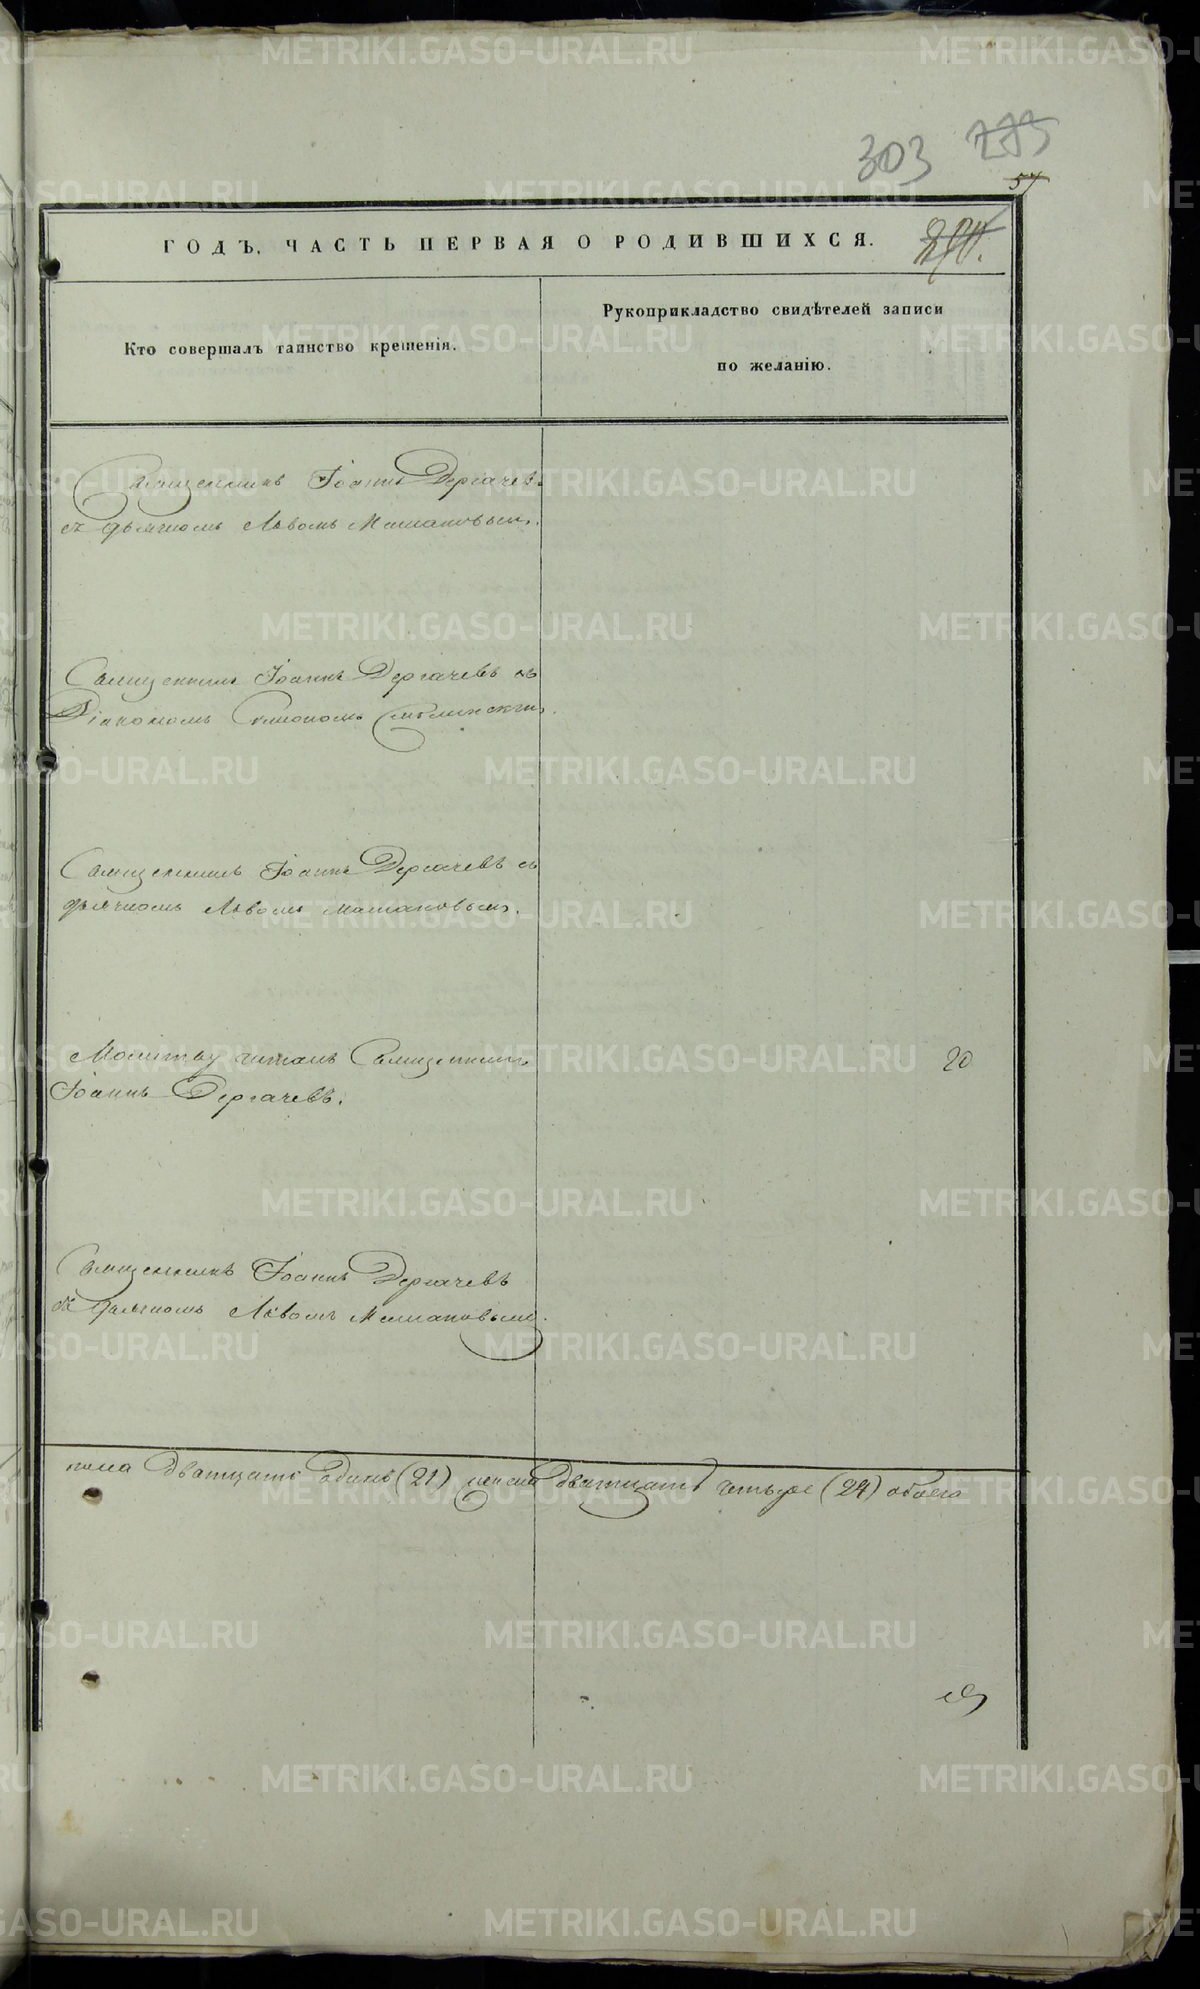 303 275
57
ГОДЪ, ЧАСТЬ ПЕРВАЯ О РОДИВШИХСЯ.
Кто совершалъ таинство крещенія.
Рукоприкладство свидѣтелей записи
по желанію.
Священникъ Іоаннъ Дергачевъ
съ дьячкомъ Львомъ Машановымъ.
Священникъ Іоаннъ Дергачевъ съ
Діакономъ Симономъ
Священникъ Іоаннъ Дергачевъ съ
дьячкомъ Львомъ Машановымъ.
Молитву читалъ Священникъ
Іоаннъ Дергачевъ.
20
Священникъ Іоаннъ Дергачевъ
съ дьячкомъ Львомъ Машановымъ.
пола дватцать одинъ (21) женска двадцать четыре (24) обоего
METRIKI.GASO-URAL.RU